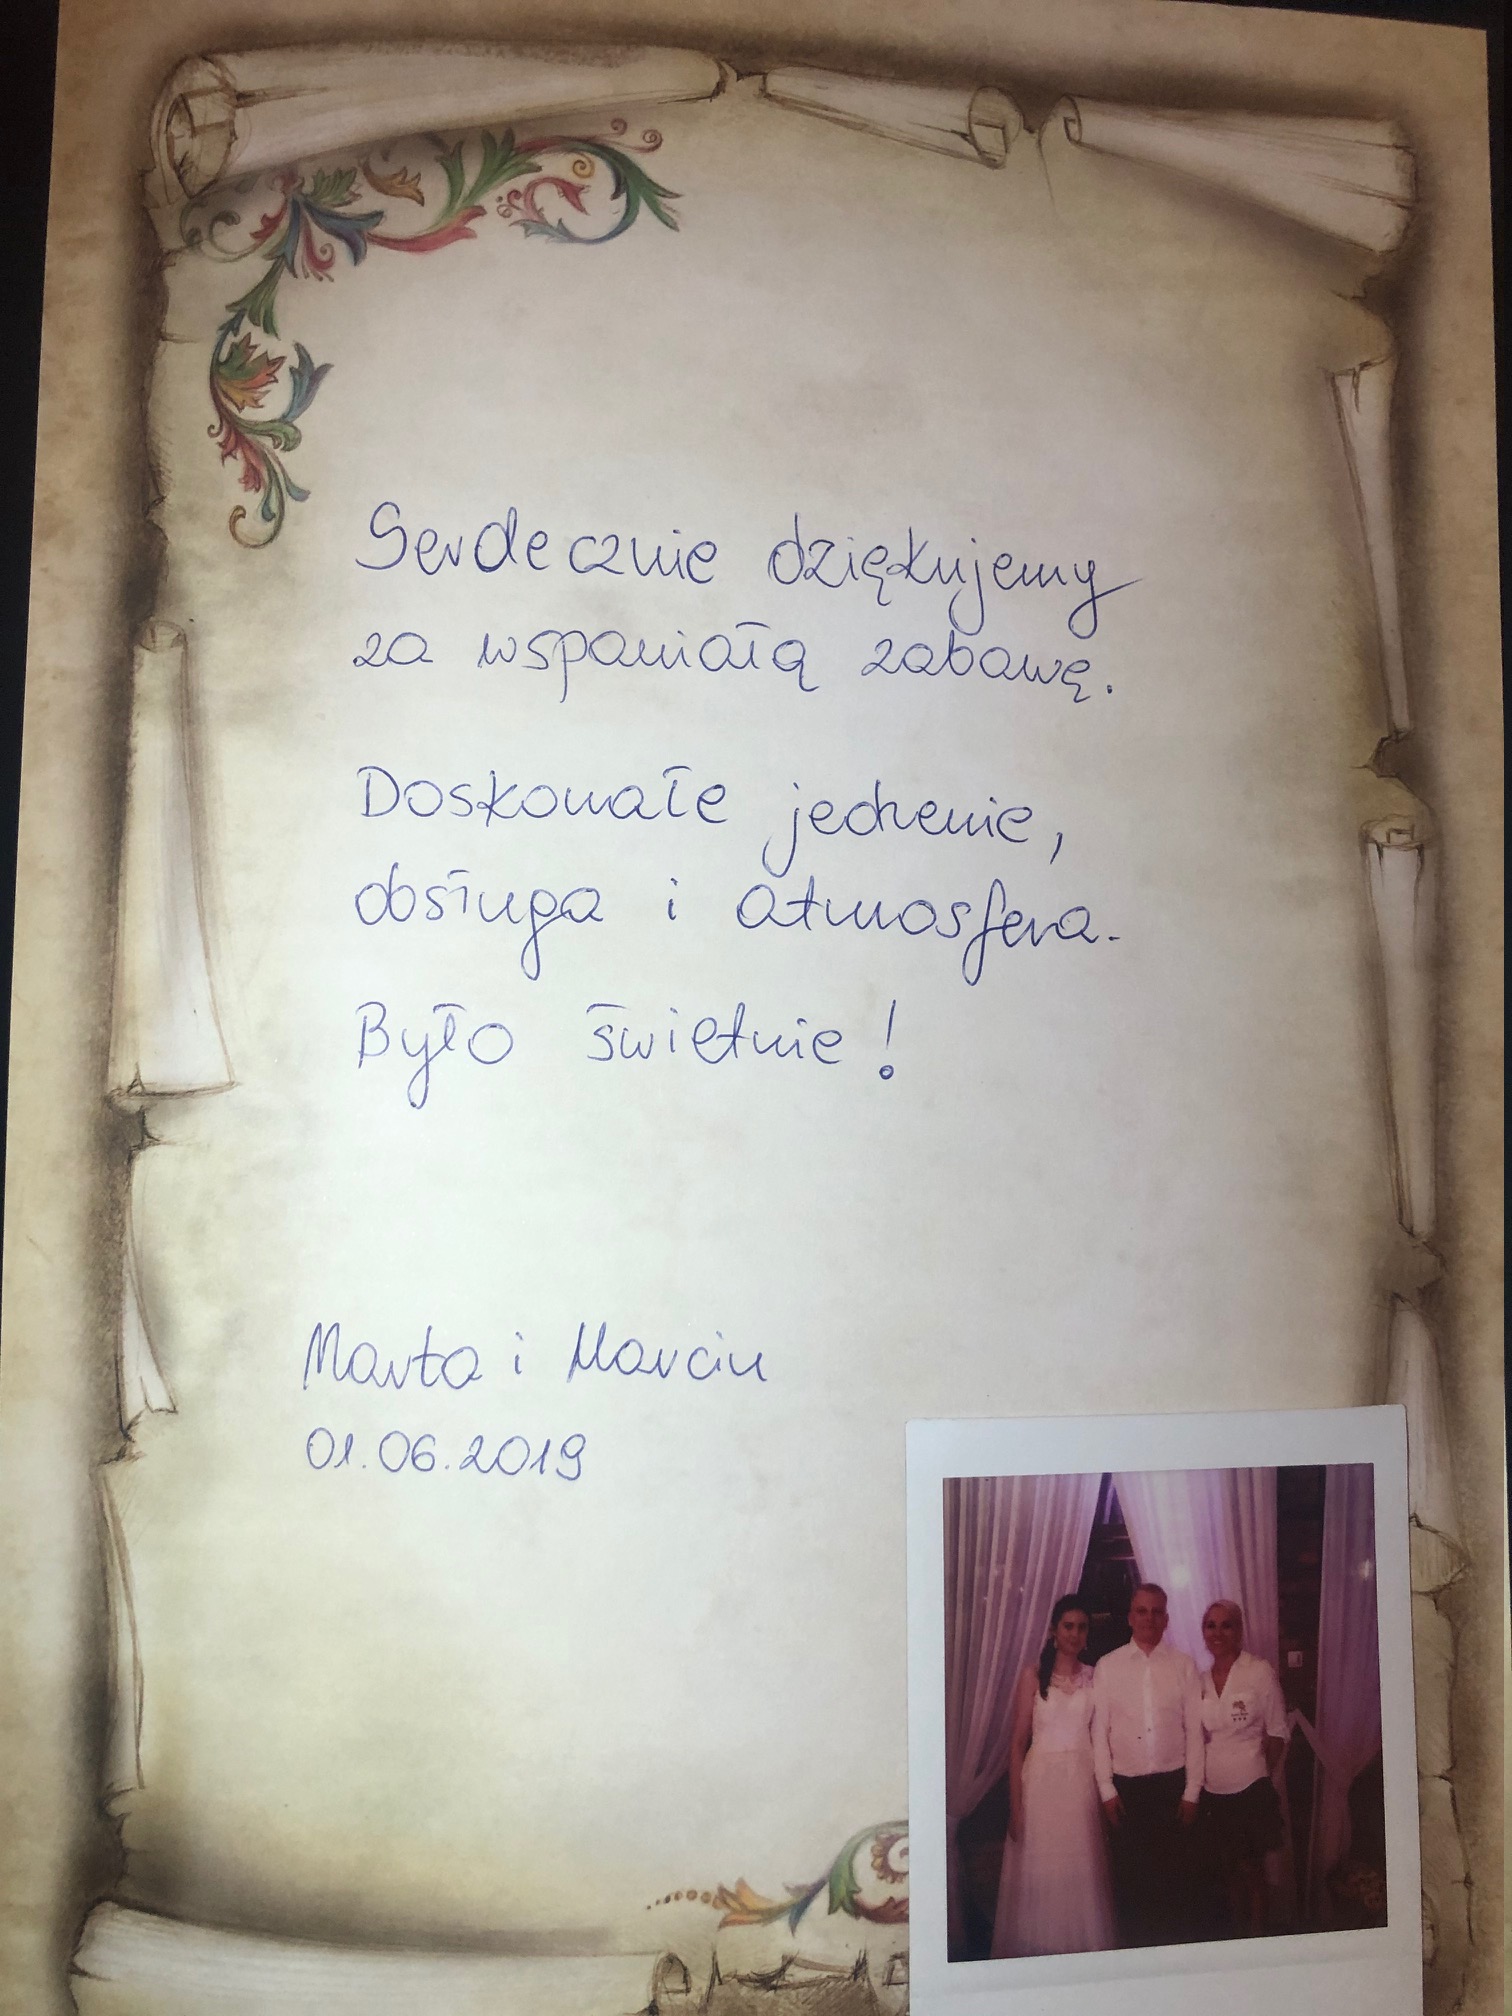 Serdecznie dziękujemy
za wspaniałą zabawę.
Doskonałe jedzenie,
obsługa i atmosfera.
Było świetnie!
Marta i Marcin
01.06.2019